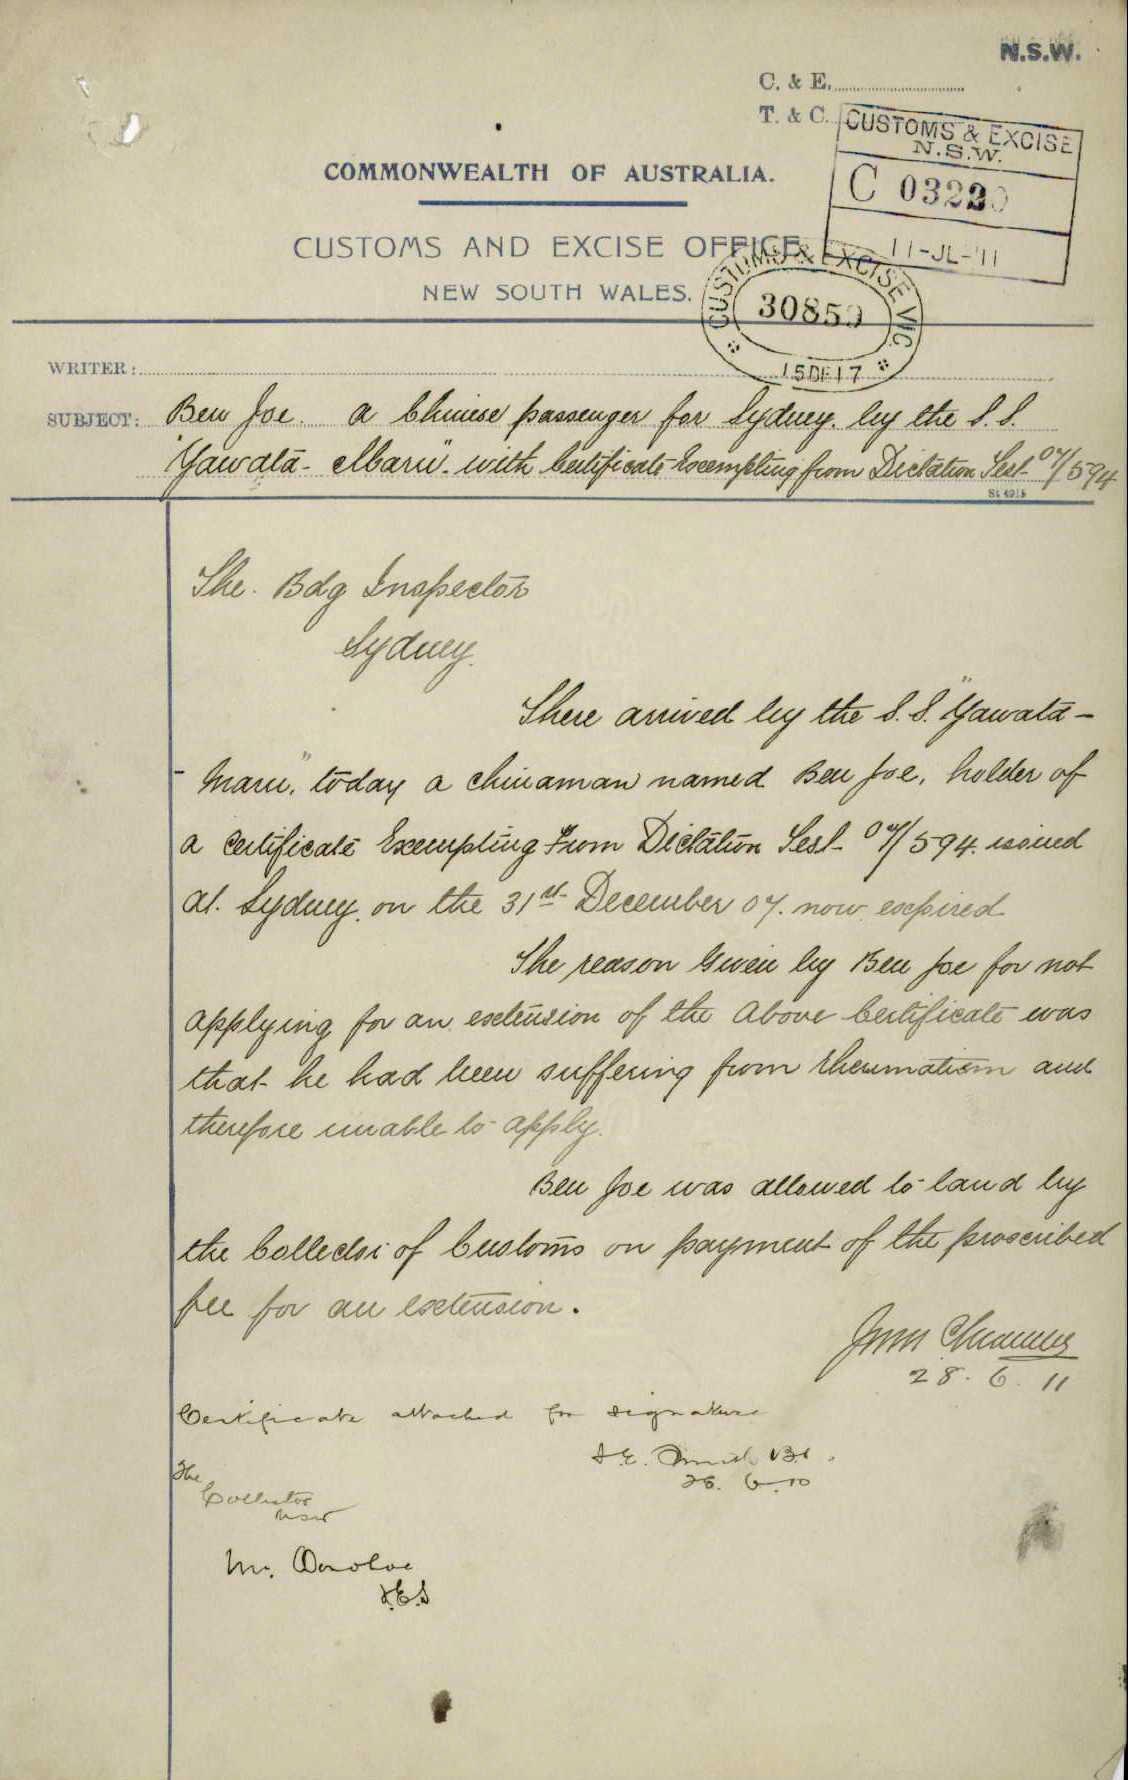 N.S.W.
C. & E.
T. & C.
CUSTOMS & EXCISE
N.S.W.
C 03220
11-JL-'11
COMMONWEALTH OF AUSTRALIA.
CUSTOMS AND EXCISE OFFICE
NEW SOUTH WALES.
CUSTOMS & EXCISE VIC
30859
15 DE 17
WRITER:
SUBJECT: Ben Joe. a Chinese passenger for Sydney. by the S.S.
"Yawata- Maru". with Certificate Exempting from Dictation Test 07/594
St 4915
The Bdg Inspector
Sydney.
There arrived by the S.S. "Yawata-
- Maru", today a Chinaman named Ben Joe, holder of
a Certificate Exempting From Dictation Test 07/594. issued
at. Sydney. on the 31st December 07. now expired
The reason Given by Ben Joe for not
applying for an extension of the above Certificate was
that he had been suffering from rheumatism and
therefore unable to apply.
Ben Joe was allowed to land by
the Collector of Customs on payment of the proscribed
fee for an extension.
28. 6. 11
Certificate attached for signature
The
Collector
NSW
Mr. Donohoe